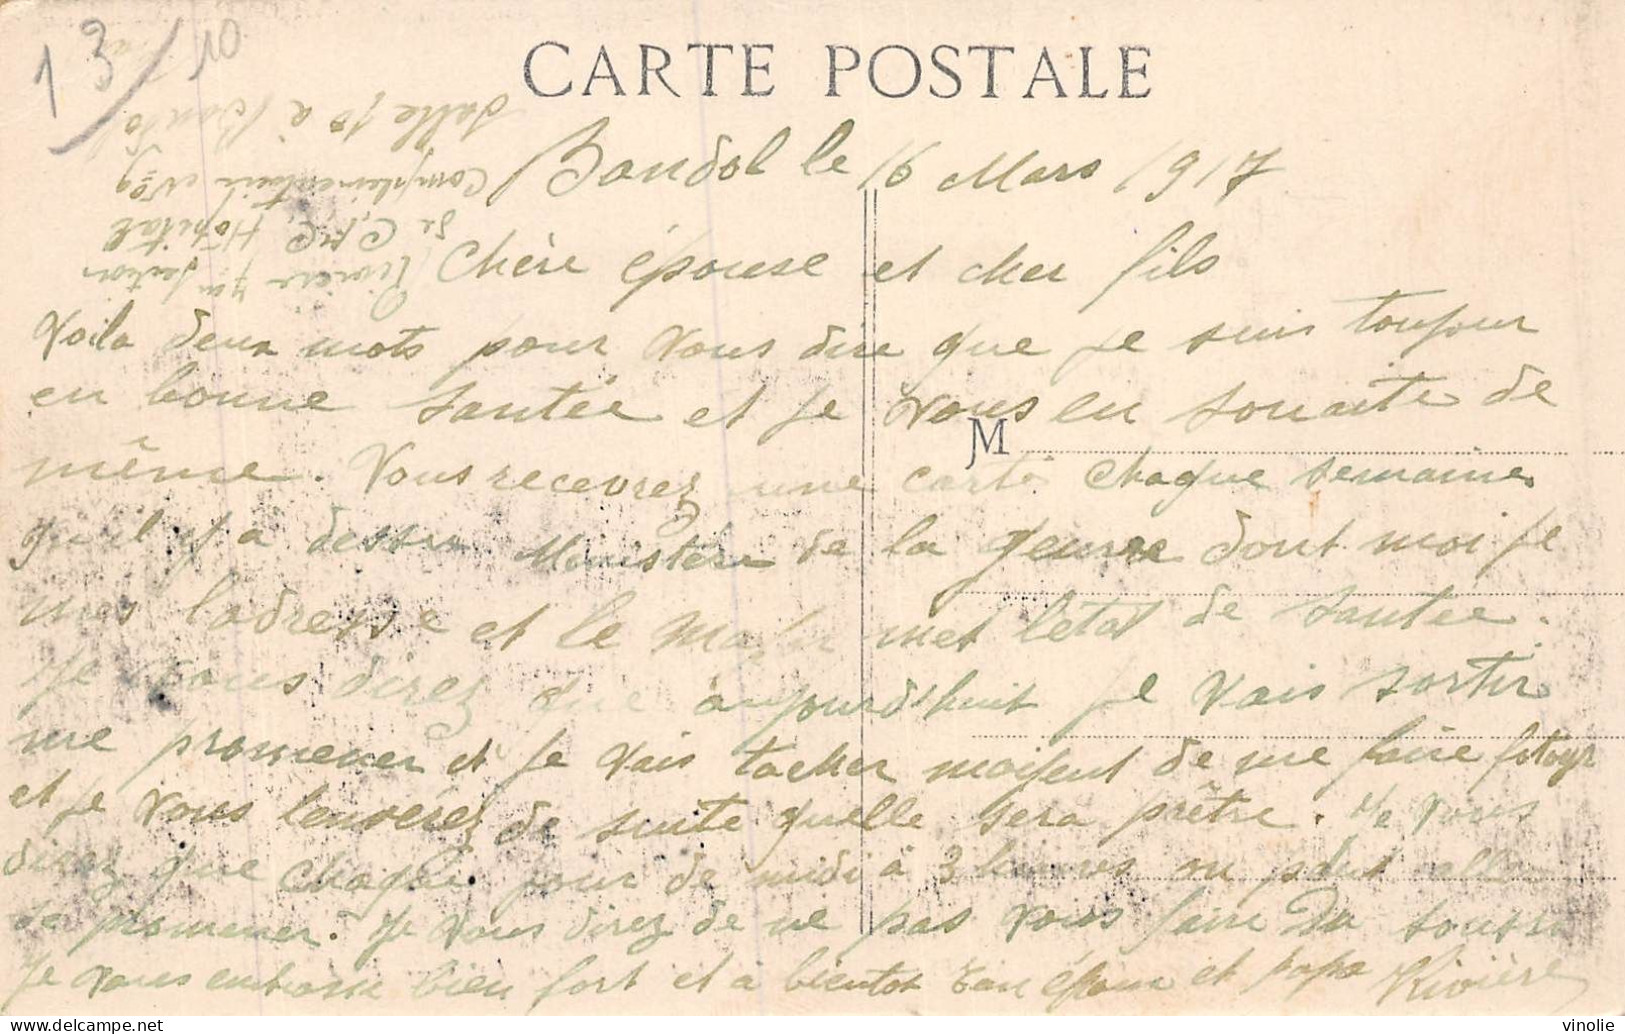 13/10
CARTE POSTALE
Bandol le 16 Mars 1917
Chère épouse et cher fils
Voila deux mots pour vous dire que je suis toujour
en bonne santée et je vous en souaite de
même. Vous recevrez une carte chaque semaine
qu'il y a dessu Ministére de la geurre dont moi je
mes ladresse et le Major met létat de santée.
Je vous direz que aujourd'huit je vais sortir
me promener et je vais tacher moifent de me faire fotogr
et je vous lenverez de suite quelle sera prêtre. Je vous
direz que chaque jour de midi à 3 heures on peut aller
se promener. Je vous direz de ne pas vous faire du
Je vous embrasse bien fort et à bientot ton époux et papa Rivière
Rivière 7me Section
de C, Hôpital
Complémentaire N°
Salle 10 à Bandol
JM
vinolie